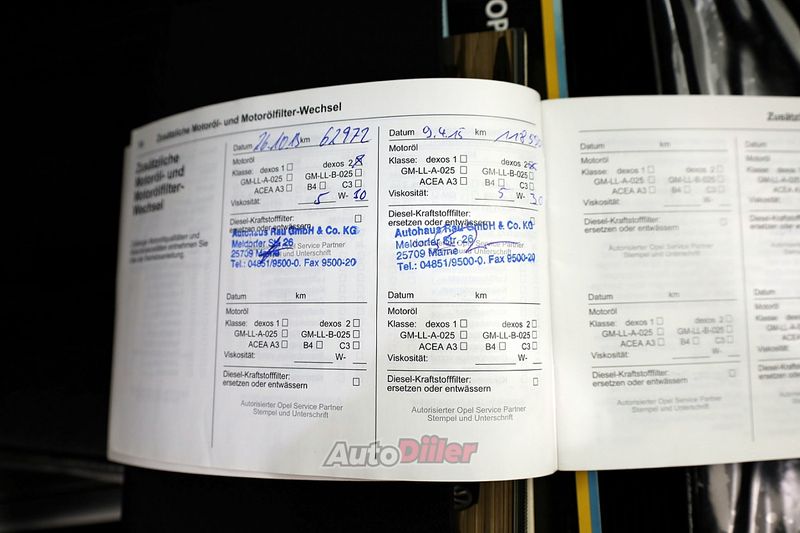 OP
Zusätzliche Motoröl- und Motorölfilter-Wechsel
Zusätzliche
Motoröl- und
Motorölfilter-
Wechsel
Datum 26.10.13 km 62972
Motoröl
Klasse: dexos 1 dexos 2
GM-LL-A-025 GM-LL-B-025
ACEA A3 B4 C3
Viskosität: 5 W- 30
Diesel-Kraftstofffilter:
ersetzen oder entwässern
Autohaus Rau GmbH & Co. KG
Meldorfer Str. 26
25709 Marne
Tel.: 04851/9500-0. Fax 9500-20
Service Partner
und Unterschrift
Datum km
Motoröl
Klasse: dexos 1 dexos 2
GM-LL-A-025 GM-LL-B-025
ACEA A3 B4 C3
Viskosität: W-
Diesel-Kraftstofffilter:
ersetzen oder entwässern
Autorisierter Opel Service Partner
Stempel und Unterschrift
Datum 9.4.15 km
Motoröl
Klasse: dexos 1 dexos 2
GM-LL-A-025 GM-LL-B-025
ACEA A3 B4 C3
Viskosität: 5 W- 30
Diesel-Kraftstofffilter:
ersetzen oder entwässern
Autohaus Rau GmbH & Co. KG
Meldorfer Str. 26
25709 Marne
Tel.: 04851/9500-0. Fax 9500-20
Datum km
Motoröl
Klasse: dexos 1 dexos 2
GM-LL-A-025 GM-LL-B-025
ACEA A3 B4 C3
Viskosität: W-
Diesel-Kraftstofffilter:
ersetzen oder entwässern
Autorisierter Opel Service Partner
Stempel und Unterschrift
Zusätz
Datum km
Motoröl
Klasse: dexos 1 dexos 2
GM-LL-A-025 GM-LL-B-025
ACEA A3 B4 C3
Viskosität: W-
Diesel-Kraftstofffilter:
ersetzen oder entwässern
Autorisierter Opel Service Partner
Stempel und Unterschrift
Datum km
Motoröl
Klasse: dexos 1 dexos 2
GM-LL-A-025 GM-LL-B-025
ACEA A3 B4 C3
Viskosität: W-
Diesel-Kraftstofffilter:
ersetzen oder entwässern
Autorisierter Opel Service Partner
Stempel und Unterschrift
AutoDiiler